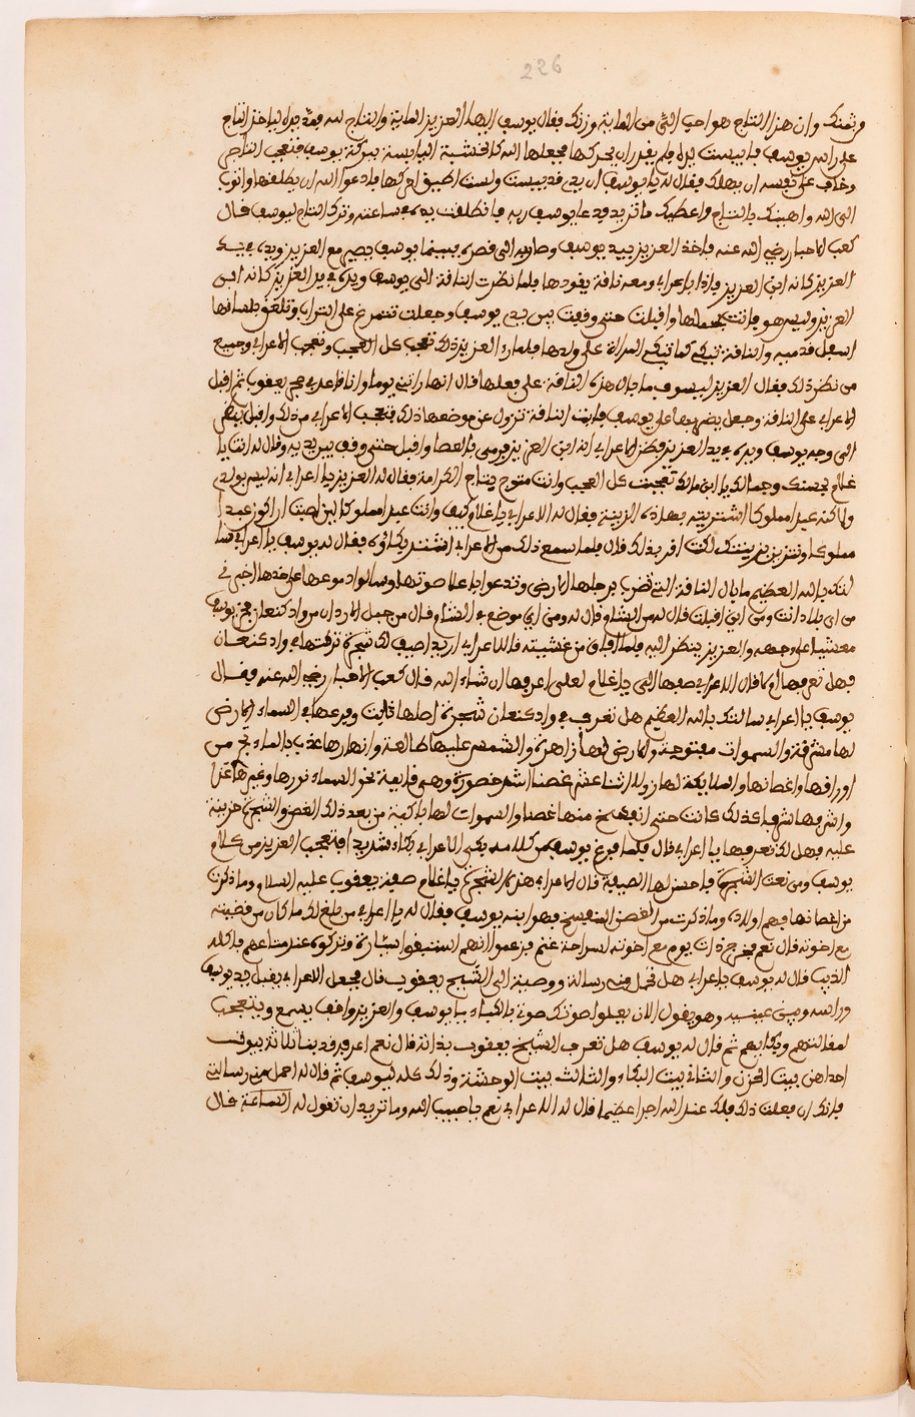 226
وثمنك وان هذا التاج هو احب الي من الماية وزنك فقال يوسف ايها العزيز الماية والتاج لله فمد يده لياخذ التاج
على راس يوسف فايبست يده ولم يقدر ان يحركها فجعلها الله كالخشبة اليابسة ببركة يوسف فتعجب التاجر
وخاف على نفسه ان يهلك فقال له يا يوسف ان يدي قد يبست ولست اطيق احركها فادعوا الله ان يطلقها واتوب
الى الله واهبك بالتاج واعطيك ما تريد فدعا يوسف ربه فانطلقت يده في ساعته وترك التاج ليوسف قال
كعب الاحبار رضي الله عنه فاخذ العزيز بيد يوسف وصار به الى قصره فبينما يوسف يصير مع العزيز ويده في يد
العزيز كانه ابن العزيز فاذا باعرابي ومعه ناقة يقودها فلما نظرت الناقة الى يوسف ويده في يد العزيز كانه ابن
العزيز وليس هو فانت واقبلت حتى وقفت بين يدي يوسف وجعلت تتمرغ على التراب وتلعق بلسانها
اسفل قدميه والناقة تبكي كما تبكي المراة على ولدها فلما راء العزيز ذلك تعجب كل العجب وتعجب الاعرابي وجميع
من نظر ذلك فقال العزيز ليوسف ما بال هذه الناقة على فعلها قال انها راتني يوما وانا ظاعد في حجر يعقوب ثم اقبل
الاعرابي على الناقة وجعل يضربها على يوسف فابت الناقة تزول عن موضعها ذلك فتعجب الاعرابي من ذلك واقبل ينظر
الى وجه يوسف ويده في يد العزيز فظن الاعرابي انه ابن العزيز فرمى بالعصا واقبل حتى وقف بين يديه وقال له انت يا
غلام بحسنك وجمالك يا ابن مالك تعجبت كل العجب وانت متوج بتاج الكرامة فقال له العزيز يا اعرابي انه ليس بولدي
ولاكنه عبد مملوكا اشتريته بهذه الزينة فقال له الاعرابي يا غلام كيف وانت عبد مملوكا
مملوكا وتتزين بزينتك لكنت اقر بذلك قال فلما سمع ذلك من الاعرابي اشتد بكاؤه فقال له يوسف يا اعرابي سا
لتك بالله العظيم ما بال الناقة التي تضرب برجلها الارض وتدعوا باعلا صوتها وسالوا دموعها على خدها اخبرني
من اي بلاد انت ومن اين اقبلت قال له من الشام قال له ومن اي موضع في الشام قال من جبل الاردان من واد كنعان فخر يوسف
مغشيا على وجهه والعزيز ينظر اليه فلما افاق من غشيته قال الاعرابي اريد اصف لك شجرة تركتها في واد كنعان
فهل تعرفها ام لا قال الاعرابي صفها الي يا غلام لعلى اعرفها ان شاء الله قال كعب الاخبار رضي الله عنه فقال
يوسف يا اعرابي سالتك بالله العظيم هل تعرف في واد كنعان شجرة اصلها ثابت وفرعها في السماء الارض
لها مشرقة والسموات مفتوحة والارض لها زاهرة والشمس عليها طالعة وانهارها عذب بالماء تجري من
اوراقها واغصانها والملايكة لها زوار لها اثنا عشر غصنا اشم خضورة وهي رافعة نحو السماء نورها وغيرها
واشرقها شرفا كذلك كانت حتى انفسخ منها غصنا والسموات لها باكية من بعد ذلك الغصن والشجرة حزينة
عليه فهل لك تعرفها يا اعرابي قال فلما فرغ يوسف من كلامه بكى الاعرابي بكاء شديدا فتعجب العزيز من كلام
يوسف ومن نعت الشجرة فاحسن لها الصفة قال الاعرابي هذه الشجرة يا غلام صفة يعقوب عليه السلام وما ذكرت
من اغصانها فهم اولاده وما ذكرت من الغصن المنفسخ فهو ابنه يوسف فقال له يا اعرابي من بلغ لك ما كان من قضيته
مع اخوته قال نعم فخرج ذات يوم مع اخوته لسراحة غنم فزعموا انهم استبقوا تسارة وتركوه عند متاعهم فاكله
الذيب قال له يوسف يا اعرابي هل تحمل مني رسالة ووصية الى الشيخ يعقوب قال فجعل الاعرابي يقبل يد يوسف
وراسه وبين عينيه وهو يقول الان يعلوا صوتك صوت بالبكاء يا يوسف والعزيز واقف يسمع ويتعجب
لمقالتهم وبكايهم ثم قال له يوسف هل تعرف الشيخ يعقوب بذاته قال نعم اعرفه قد بنا ثلاثة بيوت
احداهن بيت الحزن والثاني بيت البكاء والثالث بيت الوحشة وذلك كله ليوسف ثم قال له احمل مني رسالتي
فانك ان فعلت ذلك فلك عند الله اجرا عظيما قال له الاعرابي نعم يا حبيب الله وما تريد ان تقول له الساعة قال